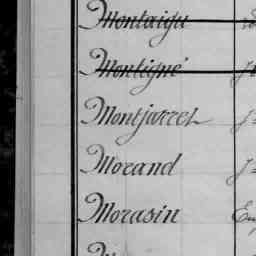 Montaigu
Montigné
Montjarret
Morand
Morasin